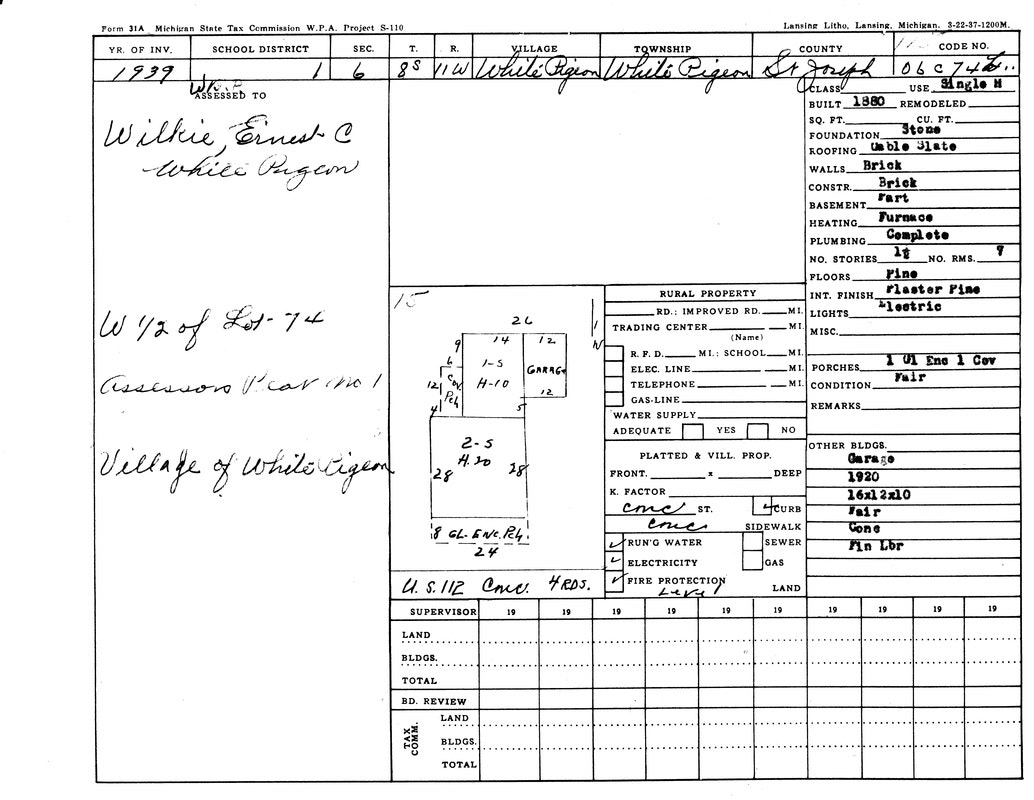 Form 31A Michigan State Tax Commission W.P.A. Project S-110
Lansing Litho, Lansing, Michigan. 3-22-37-1200M.
YR. OF INV. SCHOOL DISTRICT SEC. T. R. VILLAGE TOWNSHIP COUNTY CODE NO.
1939 1 6 8S 11W White Pigeon White Pigeon St Joseph 06 C 74
ASSESSED TO
Wilkie, Ernest C
White Pigeon
W 1/2 of Lot 74
Assessors Plat No 1
Village of White Pigeon
CLASS USE Single H
BUILT 1880 REMODELED
SQ. FT. CU. FT.
FOUNDATION Stone
ROOFING Gable Slate
WALLS Brick
CONSTR. Brick
BASEMENT Part
HEATING Furnace
PLUMBING Complete
NO. STORIES NO. RMS.
FLOORS Pine
INT. FINISH Plaster Pine
LIGHTS Electric
MISC.
PORCHES 1 Gl Enc 1 Cov
CONDITION Fair
REMARKS
OTHER BLDGS.
Garage
1920
16x12x10
Fair
Conc
Pin Lbr
15
26
N
9 14 12
6 1-S GARAGE
12 Cov Pch H-10
12
4 5
2-S
H.20
28 28
8 GL. ENC. Pch
24
U.S. 112 Conc. 4 RDS.
RURAL PROPERTY
RD.: IMPROVED RD. MI.
TRADING CENTER MI.
(Name)
R. F. D. MI.: SCHOOL MI.
ELEC. LINE MI.
TELEPHONE MI.
GAS-LINE
WATER SUPPLY
ADEQUATE YES NO
PLATTED & VILL. PROP.
FRONT. x DEEP
K. FACTOR
Conc ST. CURB
Conc SIDEWALK
RUN'G WATER SEWER
ELECTRICITY GAS
FIRE PROTECTION
Level LAND
SUPERVISOR 19 19 19 19 19 19 19 19 19 19
LAND
BLDGS.
TOTAL
BD. REVIEW
TAX COMM.
LAND
BLDGS.
TOTAL